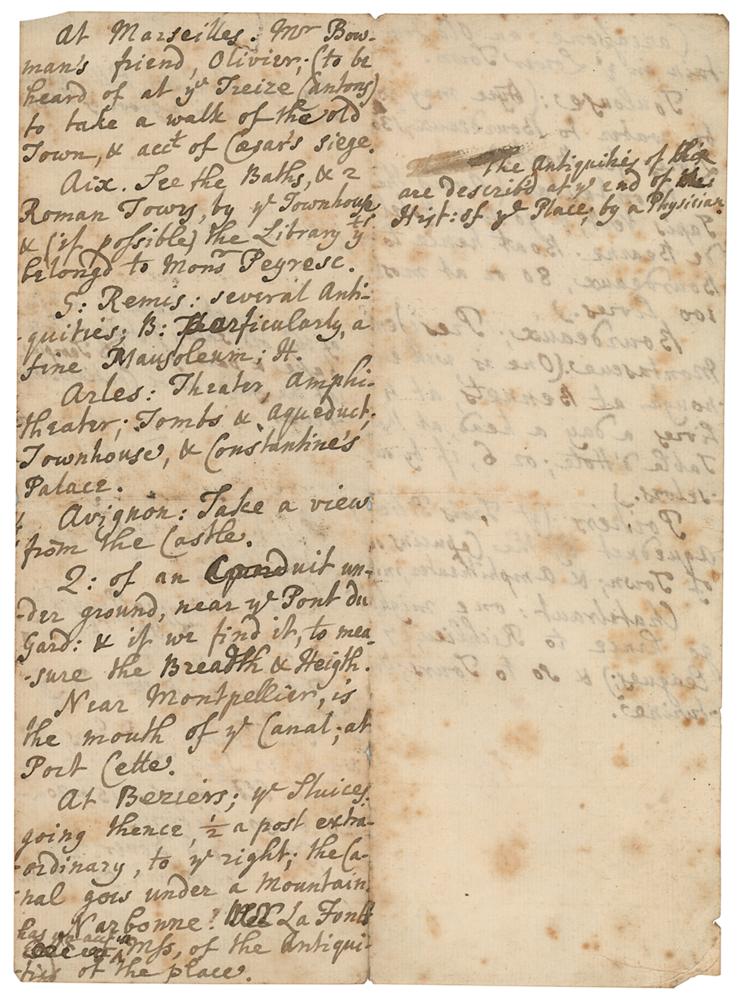 At Marseilles. Mr Bow-
man's friend, Olivier; (to be
heard of at ye Treize Cantons)
to take a walk of the old
Town, & acct of Cæsar's siege.
Aix. See the Baths, & 2
Roman Towrs, by ye Townhouse
& (if possible) the Library yt
belongd to Monsr Peyresc.
S: Remis: several Anti-
quities; B: particularly, a
fine Mausoleum; H.
Arles: Theater, Amphi-
-theater; Tombs & Aqueduct;
Townhouse, & Constantine's
Palace.
Avignon: Take a view
from the Castle.
Q: of an Conduit un-
-der ground, near ye Pont du
Gard: & if we find it, to mea-
-sure the Breadth & Heigth.
Near Montpellier, is
the mouth of ye Canal; at
Port Cette.
At Beziers; ye Sluices.
going thence, ½ a post extra-
-ordinary, to ye right; the Ca-
nal goes under a Mountain.
Narbonne: La Font
has an
Mss, of the Antiqui-
-ties of the place.
The Antiquities of this
are describ'd at ye end of the
Hist: of ye Place; by a Physician.